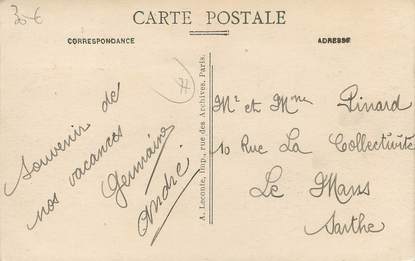 30€
CARTE POSTALE
CORRESPONDANCE
ADRESSE
Souvenir de
nos vacances
Germaine
André
A. Leconte, Imp., rue des Archives, Paris.
#
Mr et Mme Pinard
10 Rue La Collectivité
Le Mans
Sarthe